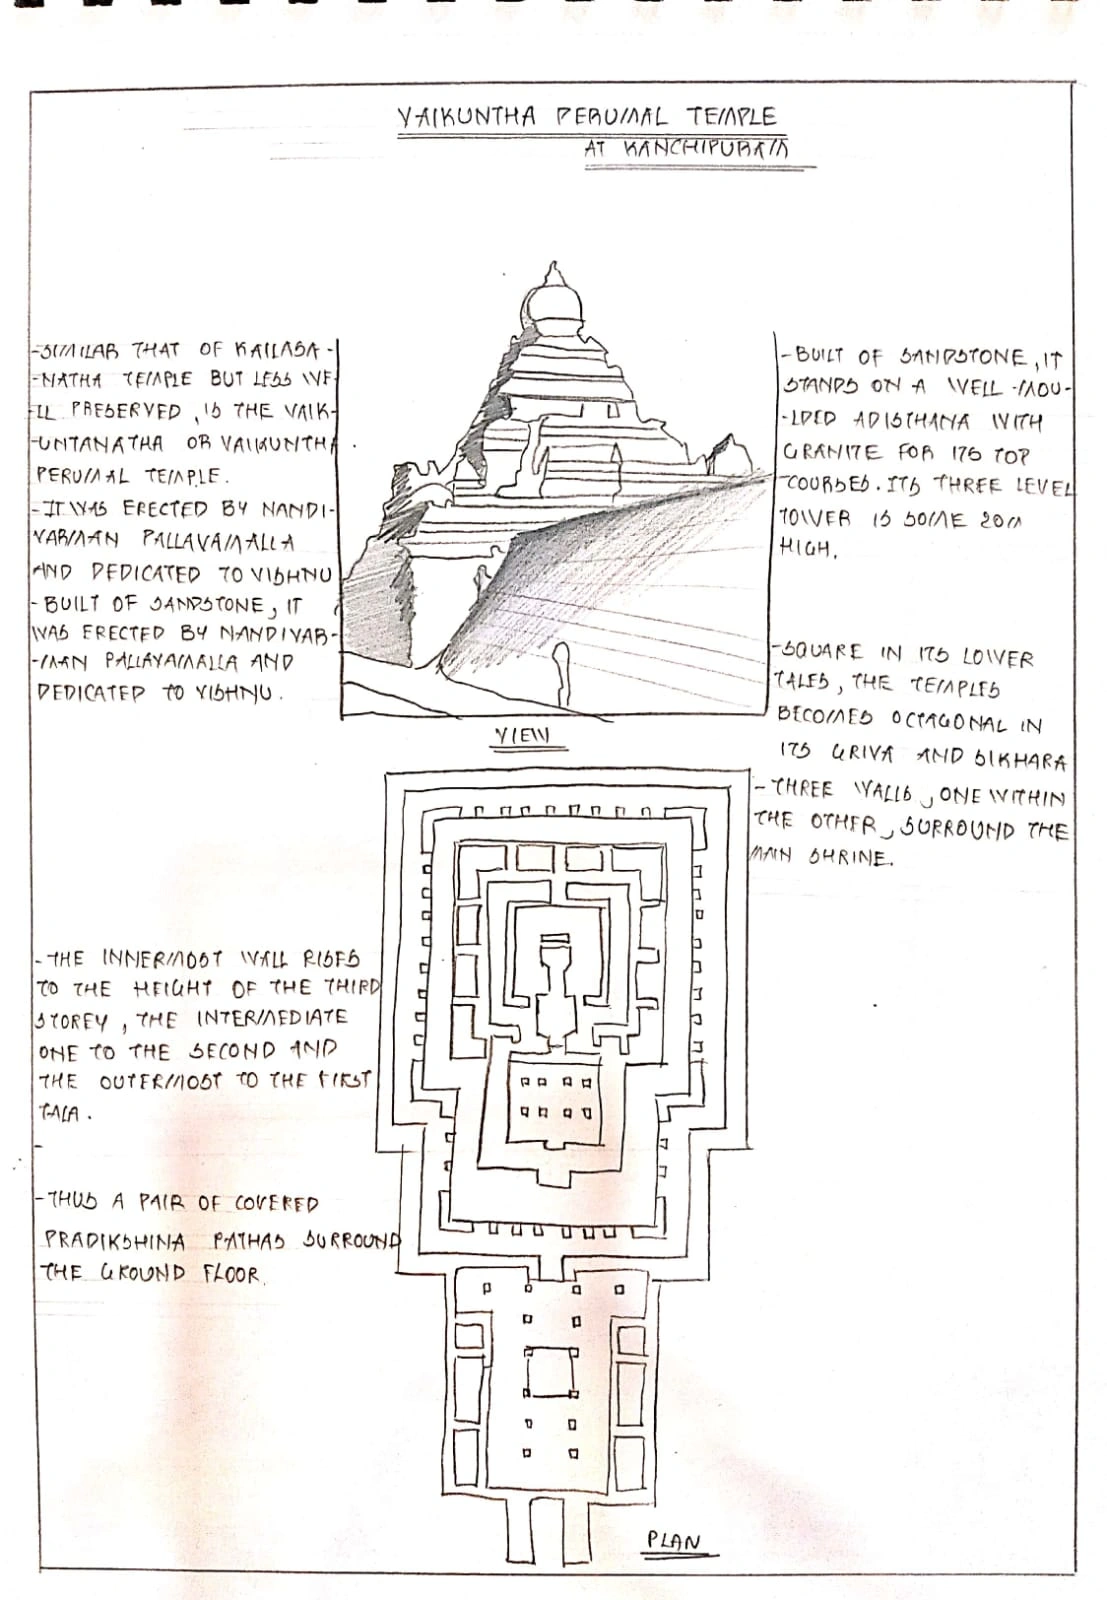 VAIKUNTHA PERUMAL TEMPLE
AT KANCHIPURAM
-SIMILAR THAT OF KAILASA-
-NATHA TEMPLE BUT LESS WE-
-LL PRESERVED, IS THE VAIK-
-UNTANATHA OR VAIKUNTHA
PERUMAL TEMPLE.
-IT WAS ERECTED BY NANDI-
VARMAN PALLAVAMALLA
AND DEDICATED TO VISHNU
- BUILT OF SANDSTONE, IT
WAS ERECTED BY NANDIVAR-
-MAN PALLAVAMALLA AND
DEDICATED TO VISHNU.
-BUILT OF SANDSTONE, IT
STANDS ON A WELL-MOU-
-LDED ADISTHANA WITH
GRANITE FOR ITS TOP
COURSES. ITS THREE LEVEL
TOWER IS SOME 20M
HIGH.
-SQUARE IN ITS LOWER
TALES, THE TEMPLES
BECOMES OCTAGONAL IN
ITS GRIVA AND SIKHARA
- THREE WALLS, ONE WITHIN
THE OTHER, SURROUND THE
MAIN SHRINE.
VIEW
- THE INNERMOST WALL RISES
TO THE HEIGHT OF THE THIRD
STOREY, THE INTERMEDIATE
ONE TO THE SECOND AND
THE OUTERMOST TO THE FIRST
TALA.
-
-THUS A PAIR OF COVERED
PRADIKSHINA PATHAS SURROUND
THE GROUND FLOOR.
PLAN